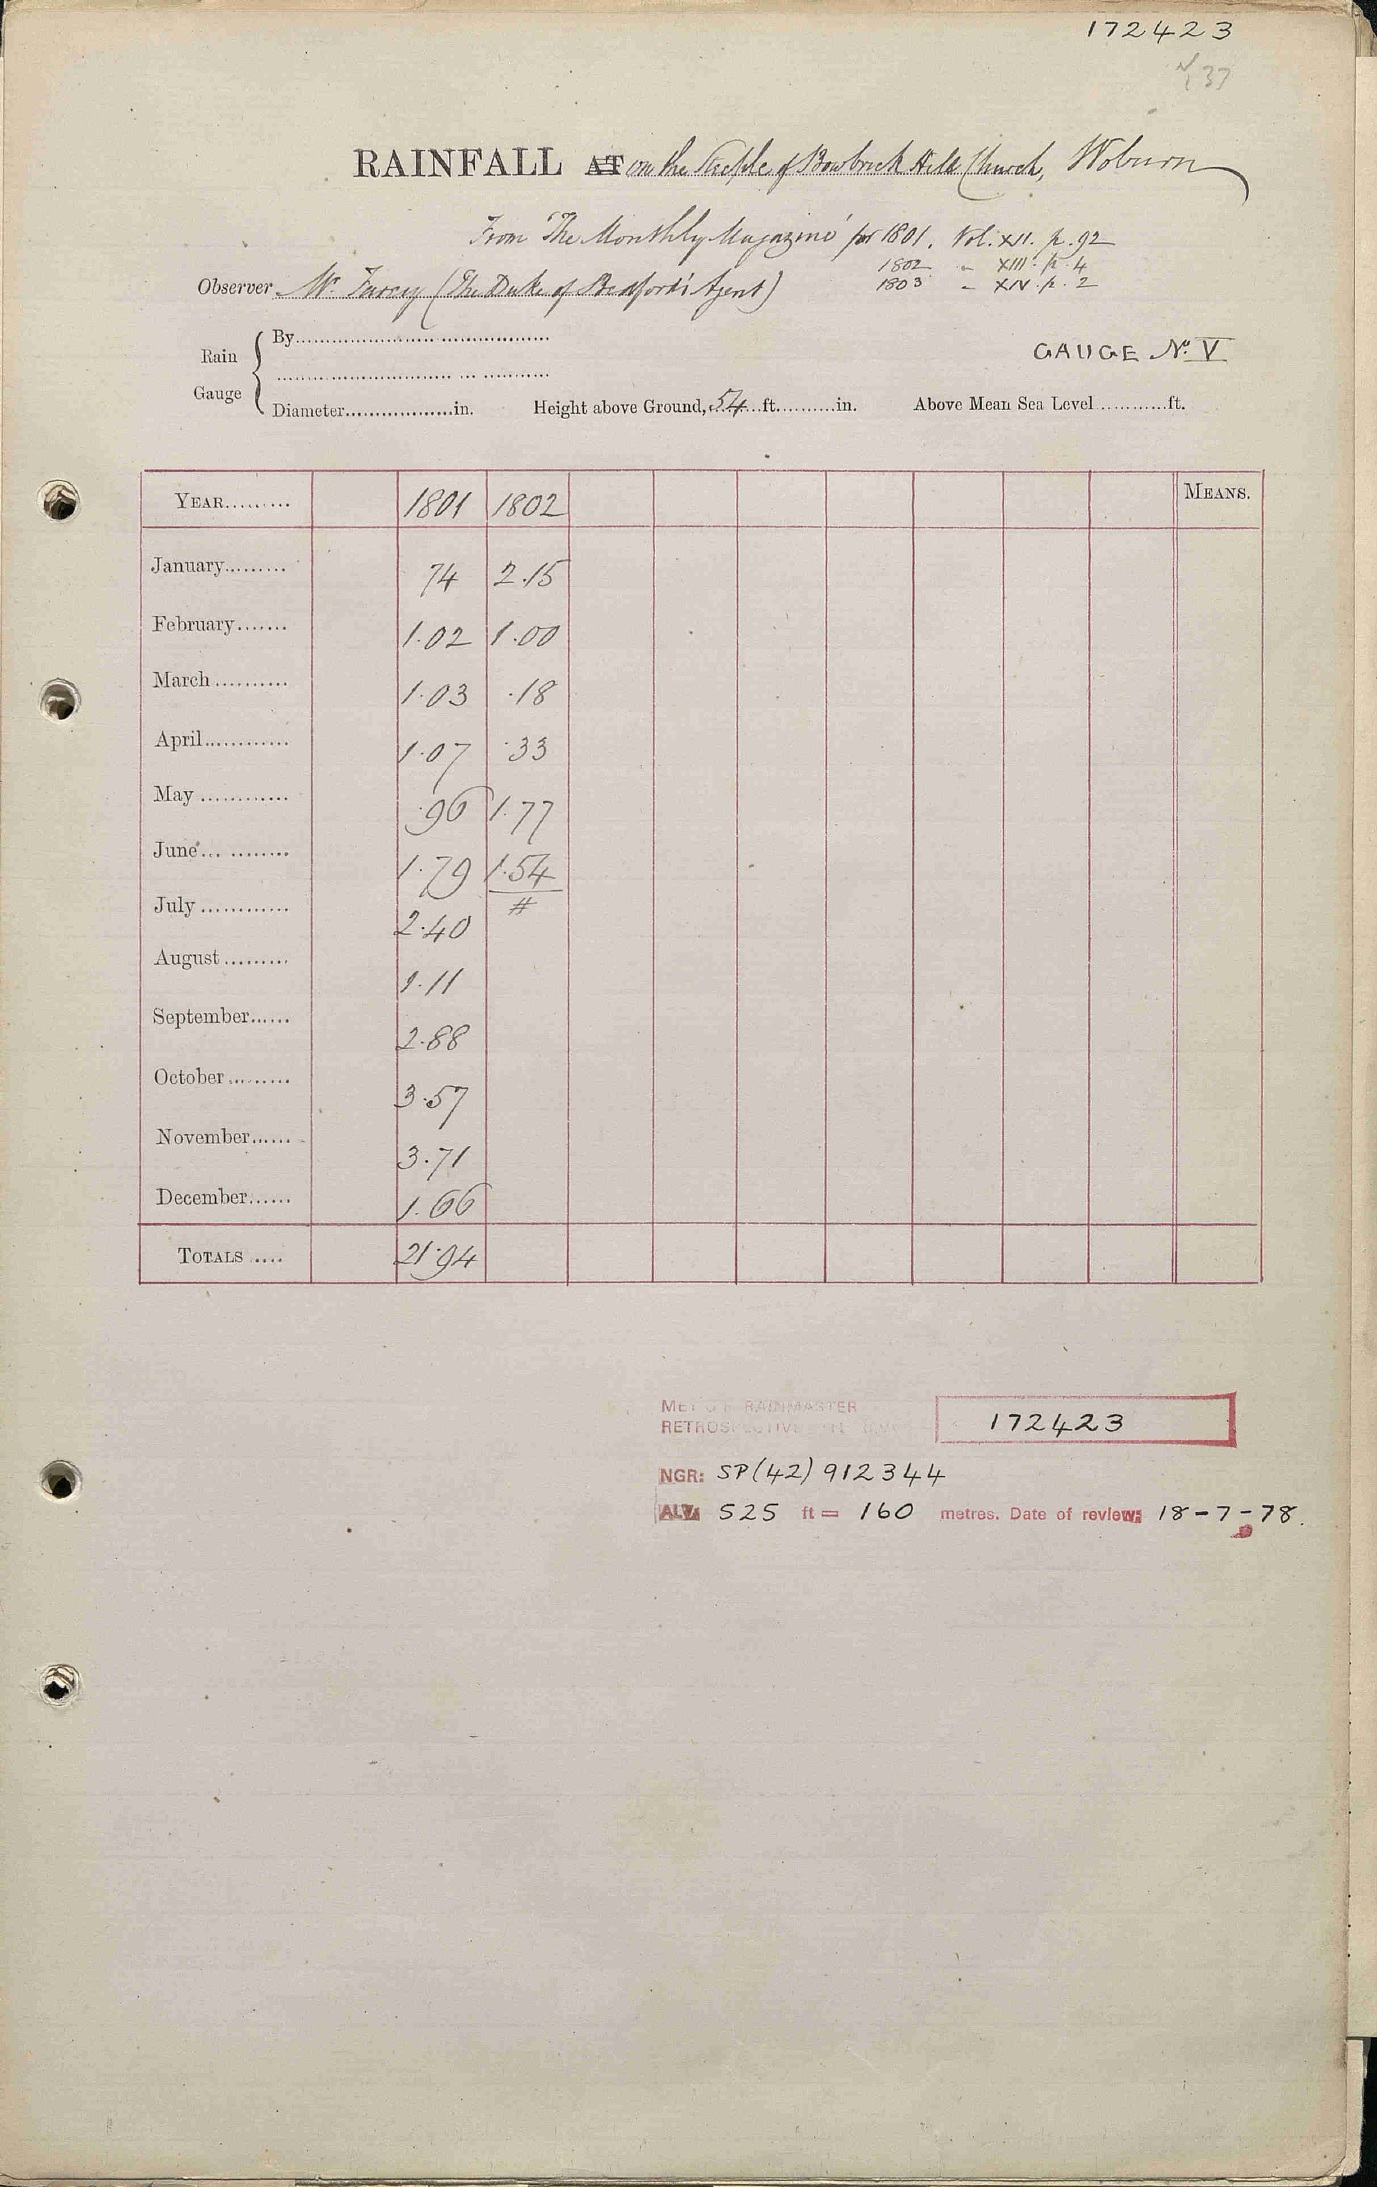 172423
137
RAINFALL AT on the Steeple of Bowbrick Hill Church, Woburn
From 'The Monthly Magazine' for 1801. Vol. XII. p. 92
1802 " XIII. p. 4
Observer Mr. Farey (The Duke of Bedford's Agent)
1803 " XIV. p. 2
Rain Gauge { By
GAUGE No. V
Diameter in. Height above Ground, 54 ft. in. Above Mean Sea Level ft.
YEAR 1801 1802 MEANS.
January 74 2.15
February 1.02 1.00
March 1.03 .18
April 1.07 .33
May .96 1.77
June 1.79 1.54
July 2.40 #
August 1.11
September 2.88
October 3.57
November 3.71
December 1.66
TOTALS 21.94
MET O 8 RAINMASTER
RETROSPECTIVE 172423
NGR: SP(42) 912344
ALT: 525 ft = 160 metres. Date of review: 18-7-78.